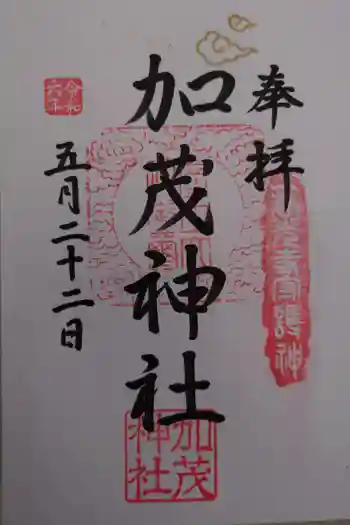 奉拝
加茂神社
加茂神社
令和六年
五月二十二日